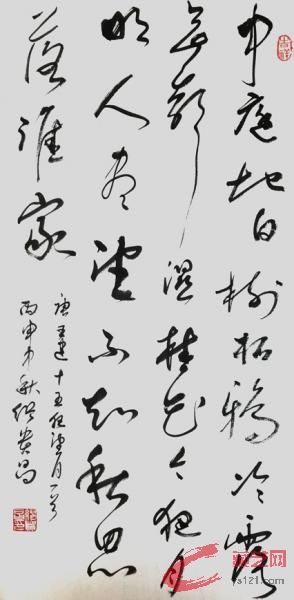 中庭地白樹栖鴉冷露
無聲濕桂花今夜月
明人盡望不知秋思
落誰家
唐王建十五夜望月一首
丙申中秋 貴昌
ys121.com